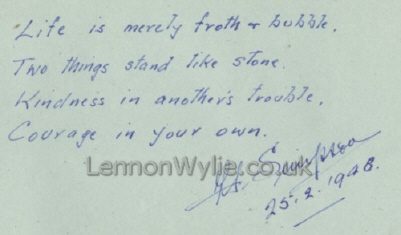 Life is merely froth & bubble.
Two things stand like stone.
Kindness in another's trouble.
Courage in your own.
LennonWylie.co.uk
25.2.1928.